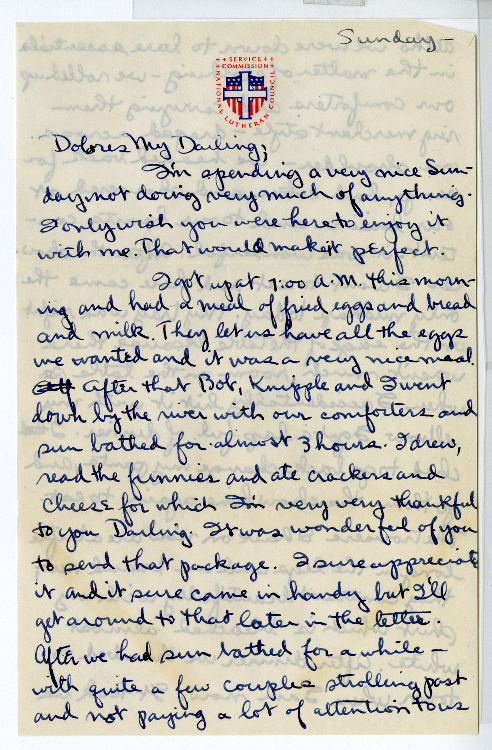 Sunday-
SERVICE
COMMISSION
NATIONAL LUTHERAN COUNCIL
Dolores My Darling;
I'm spending a very nice Sun-
day not doing very much of anything.
I only wish you were here to enjoy it
with me. That would make it perfect.
I got up at 7:00 A.M. this morn-
ing and had a meal of fried eggs and bread
and milk. They let us have all the eggs
we wanted and it was a very nice meal.
After that Bob, Knipple and I went
down by the river with our comforters and
sun bathed for almost 3 hours. I drew,
read the funnies and ate crackers and
cheese for which I'm very very thankful
to you Darling. It was wonderful of you
to send that package. I sure appreciate
it and it sure came in handy but I'll
get around to that later in the letter.
After we had sun bathed for a while-
with quite a few couples strolling past
and not paying a lot of attention to us